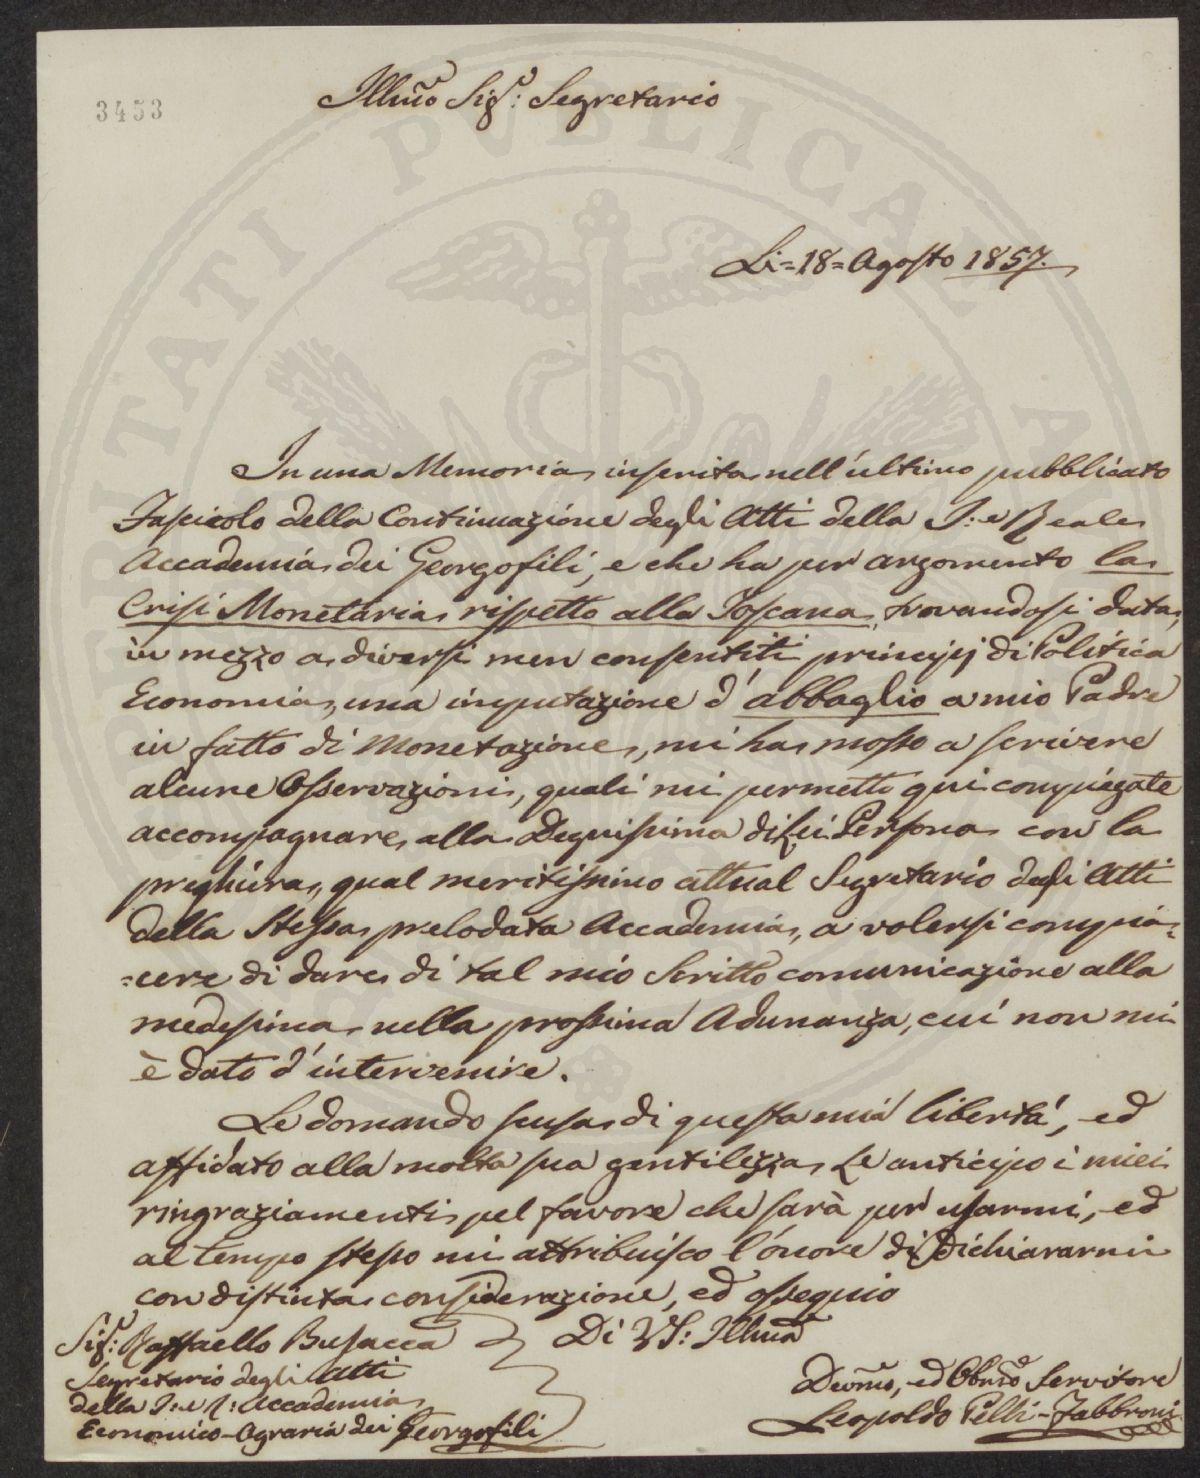 3453
Illmo Sigr: Segretario
Li=18=Agosto 1857.
In una Memoria inserita nell'ultimo pubblicato
Fascicolo della Continuazione degli Atti della I: e Reale
Accademia dei Georgofili, e che ha per argomento la
Crisi Monetaria rispetto alla Toscana, trovandosi data,
in mezzo a diversi men consentiti principj di Politica
Economia, una imputazione d'abbaglio a mio Padre
in fatto di Monetazione, mi ha mosso a scrivere
alcune Osservazioni, quali mi permetto qui compiegate
accompagnare alla Degnissima di Lei Persona con la
preghiera, qual meritissimo attual Segretario degli Atti
della stessa prelodata Accademia, a volersi compia=
=cere di dare di tal mio Scritto comunicazione alla
medesima nella prossima Adunanza, cui non mi
è dato d'intervenire.
Le domando scusa di questa mia libertà, ed
affidato alla molta sua gentilezza, Le anticipo i miei
ringraziamenti pel favore che sarà per usarmi, ed
al tempo stesso mi attribuisco l'onore di Dichiararmi
con distinta considerazione, ed ossequio
Di VS: Illma
Sigr: Raffaello Busacca
Segretario degli Atti
della I: e R: Accademia
Economico-Agraria dei Georgofili
Devmo, ed Obbmo Servitore
Leopoldo Pelli-Fabbroni
PROSPERITATI PVBLICAE AV